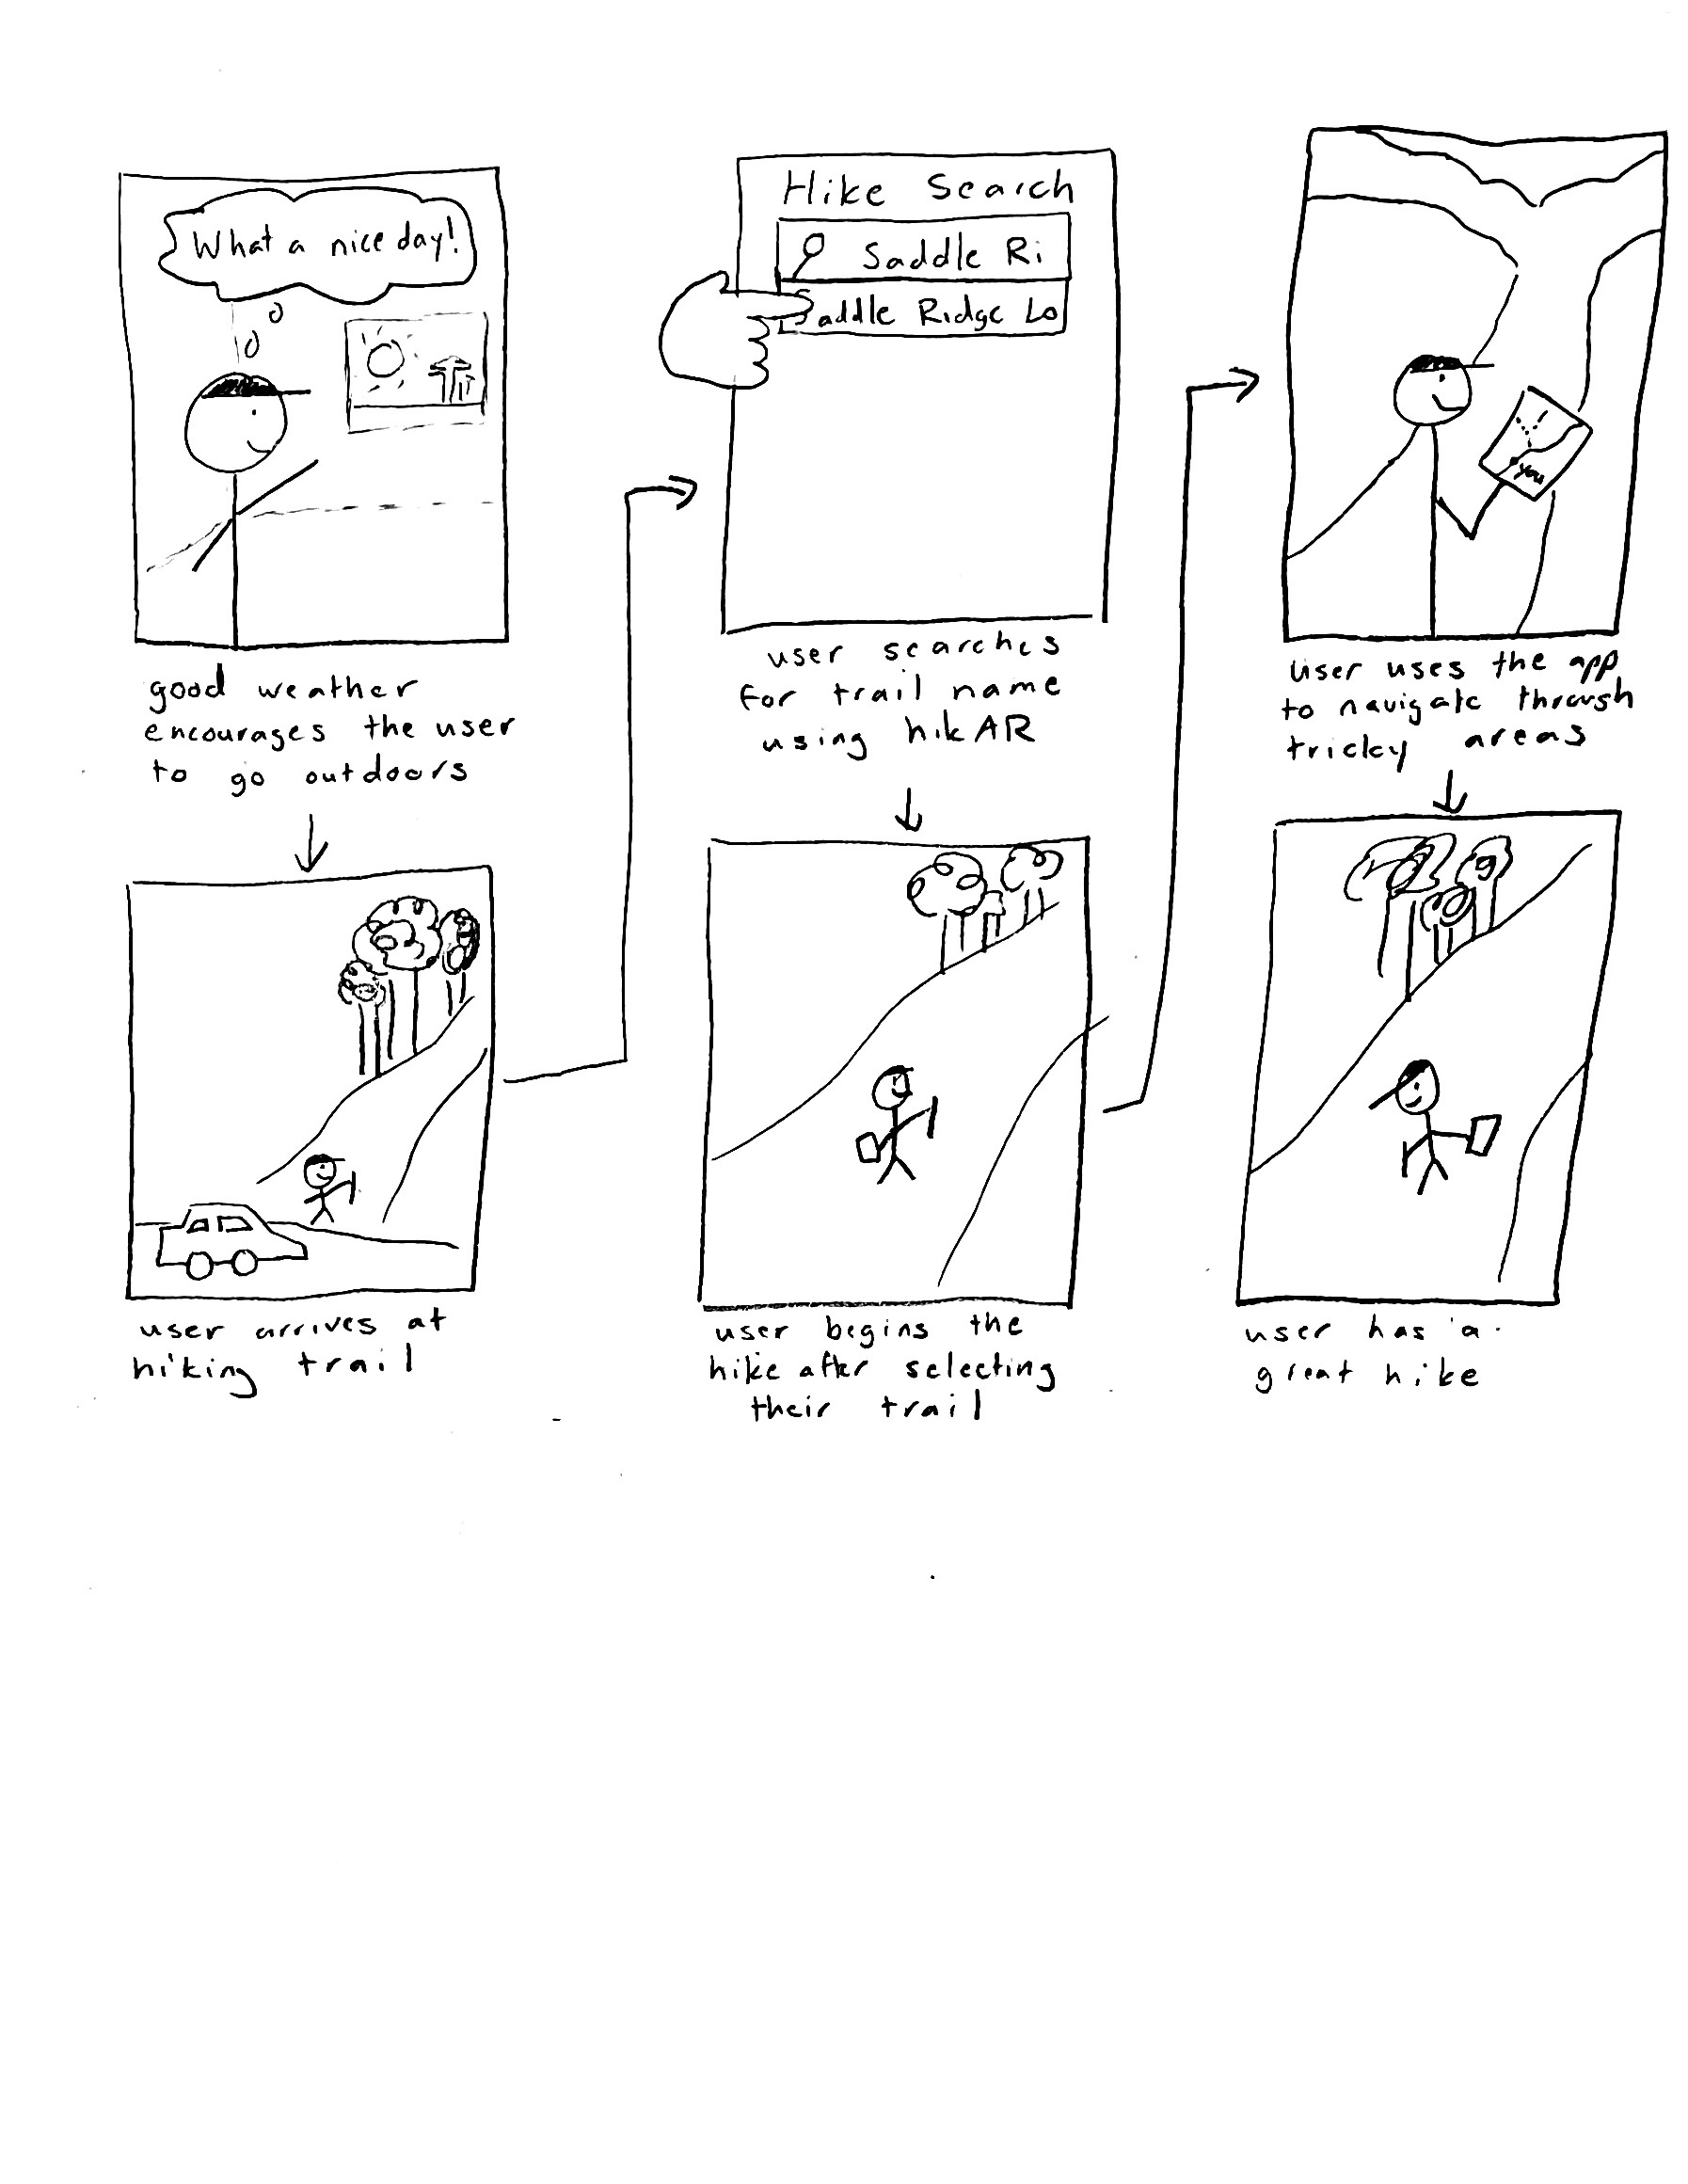 What a nice day!
good weather
encourages the user
to go outdoors
user arrives at
hiking trail
Hike Search
Saddle Ri
Saddle Ridge Lo
user searches
for trail name
using hikAR
user begins the
hike after selecting
their trail
you
user uses the app
to navigate through
tricky areas
user has a
great hike